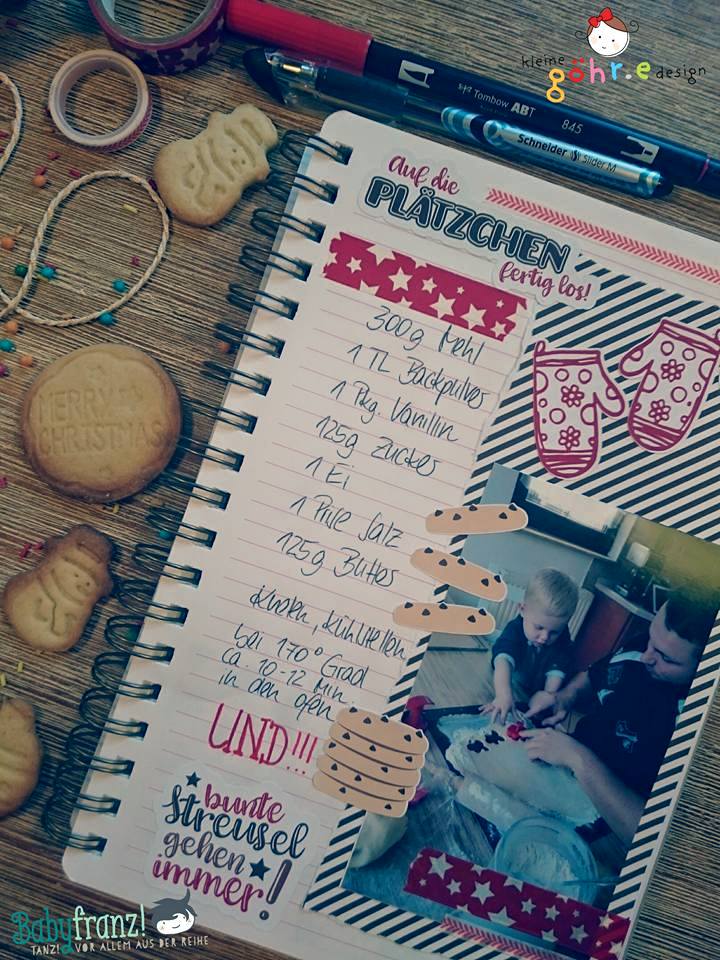 kleine
göhr.e design
Tombow ABT
845
Schneider Slider M
Auf die
PLÄTZCHEN
fertig los!
300g Mehl
1 TL Backpulver
1 Pkg. Vanillin
125g Zucker
1 Ei
1 Prise Salz
125g Butter
MERRY
CHRISTMAS
kneten, kühlstellen
bei 170° Grad
ca. 10-12 Min.
in den Ofen
UND!!!
bunte
Streusel
gehen
immer!
Babyfranz!
TANZ! VOR ALLEM AUS DER REIHE